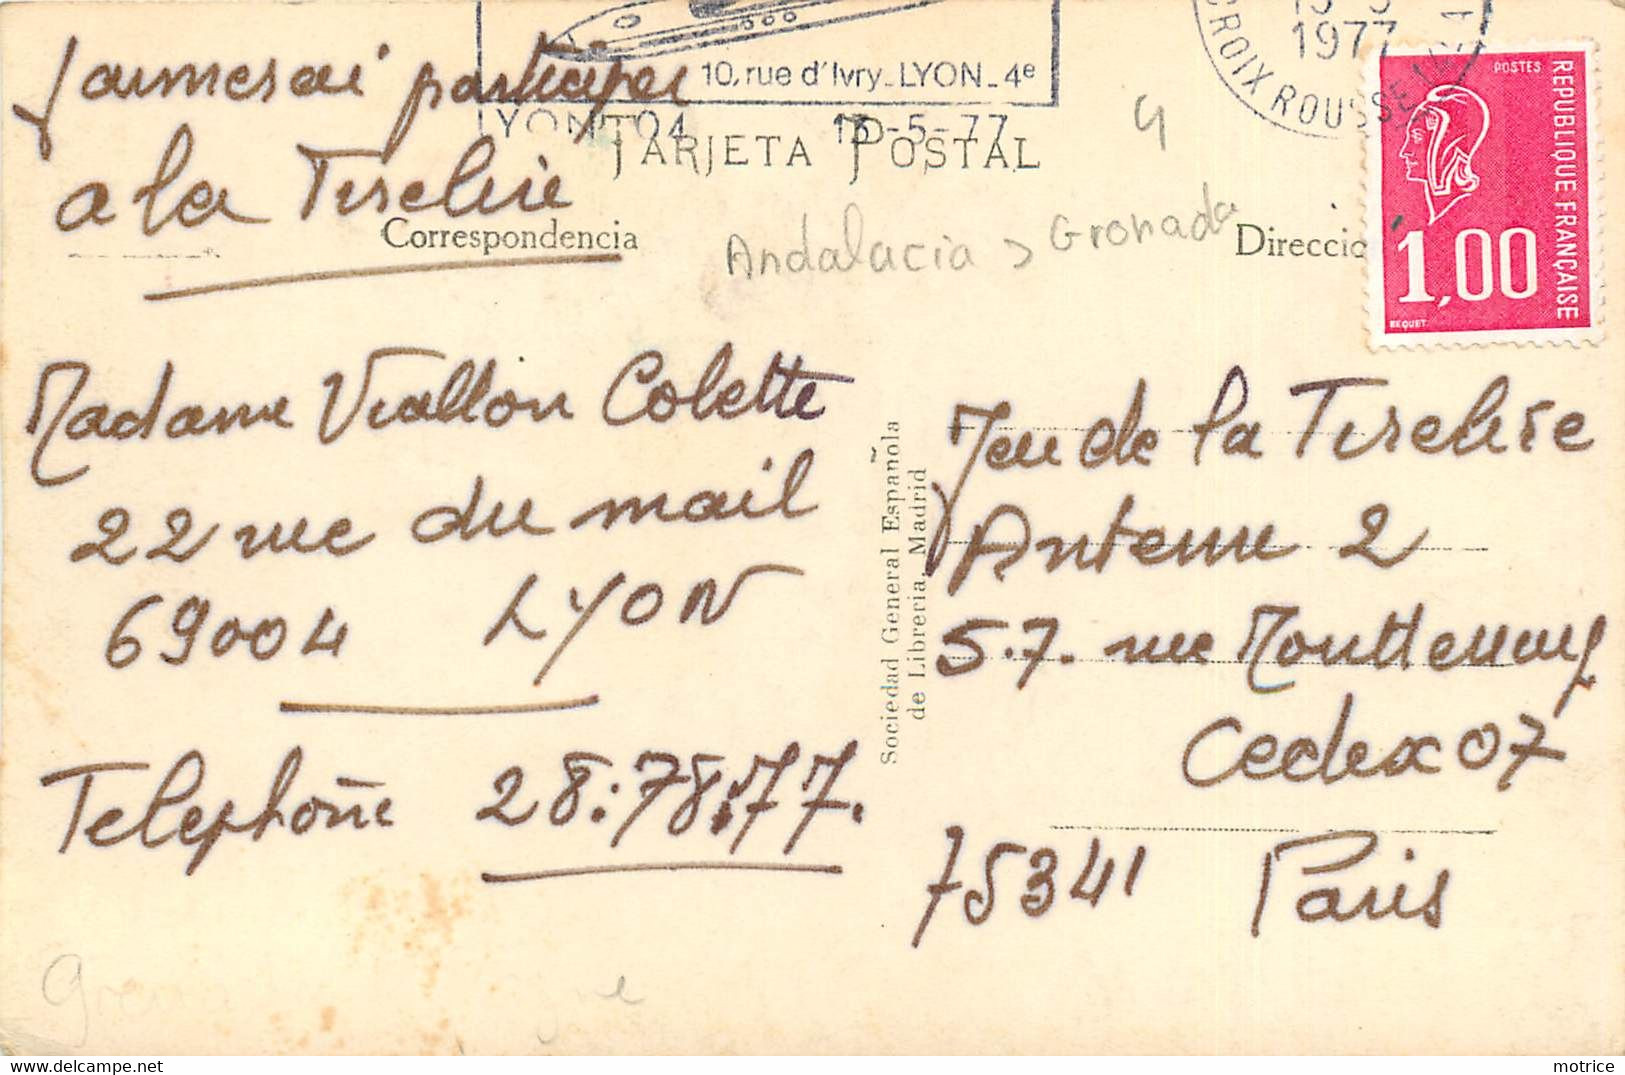 J'aimerai participer
a la Tirelire
10, rue d'Ivry_LYON_4e
LYON 04 13-5-77
1977
CROIX ROUSSE
TARJETA POSTAL
4
POSTES
REPUBLIQUE FRANÇAISE
1,00
BEQUET
Correspondencia
Andalacia > Gronada
Direcció
Madame Viallon Colette
22 rue du mail
69004 LYON
Telephone 28:78:77.
Sociedad General Española
de Librería. Madrid
Jeu de la Tirelire
Antenne 2
5.7. rue Monttessuy
Cedex 07
75341 Paris
motrice